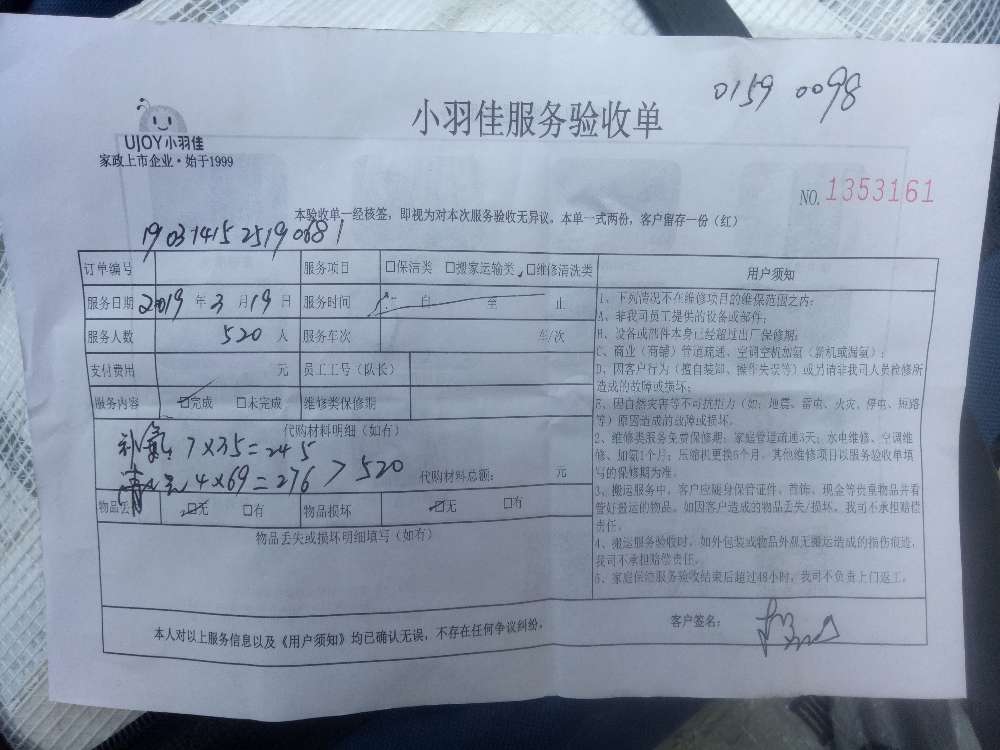 0159 0098
小羽佳服务验收单
UJOY小羽佳
家政上市企业·始于1999
NO. 1353161
本验收单一经核签，即视为对本次服务验收无异议。本单一式两份，客户留存一份（红）
订单编号 1903141525190681 服务项目 □保洁类 □搬家运输类 □维修清洗类
服务日期 2019 年 3 月 19 日 服务时间 自 至 止
服务人数 520 人 服务车次 车/次
支付费用 元 员工工号（队长）
服务内容 □完成 □未完成 维修类保修期
代购材料明细（如有）
补氟 7×35=245
清洗 4×69=276 > 520
代购材料总额： 元
物品丢 □无 □有 物品损坏 □无 □有
物品丢失或损坏明细填写（如有）
用户须知
1、下列情况不在维修项目的维保范围之内：
A、非我司员工提供的设备或部件；
B、设备或部件本身已经超过出厂保修期；
C、商业（商铺）管道疏通、空调空机加氟（新机或漏氟）；
D、因客户行为（擅自装卸、操作失误等）或另请非我司人员检修所
造成的故障或损坏；
E、因自然灾害等不可抗拒力（如：地震、雷电、火灾、停电、短路
等）原因造成的故障或损坏。
2、维修类服务免费保修期：家庭管道疏通3天；水电维修、空调维
修、加氟1个月；压缩机更换6个月。其他维修项目以服务验收单填
写的保修期为准。
3、搬运服务中，客户应随身保管证件、首饰、现金等贵重物品并看
管好搬运的物品。如因客户造成的物品丢失/损坏，我司不承担赔偿
责任。
4、搬运服务验收时，如外包装或物品外观无搬运造成的损伤痕迹，
我司不承担赔偿责任。
5、家庭保洁服务验收结束后超过48小时，我司不负责上门返工。
本人对以上服务信息以及《用户须知》均已确认无误，不存在任何争议纠纷。
客户签名：